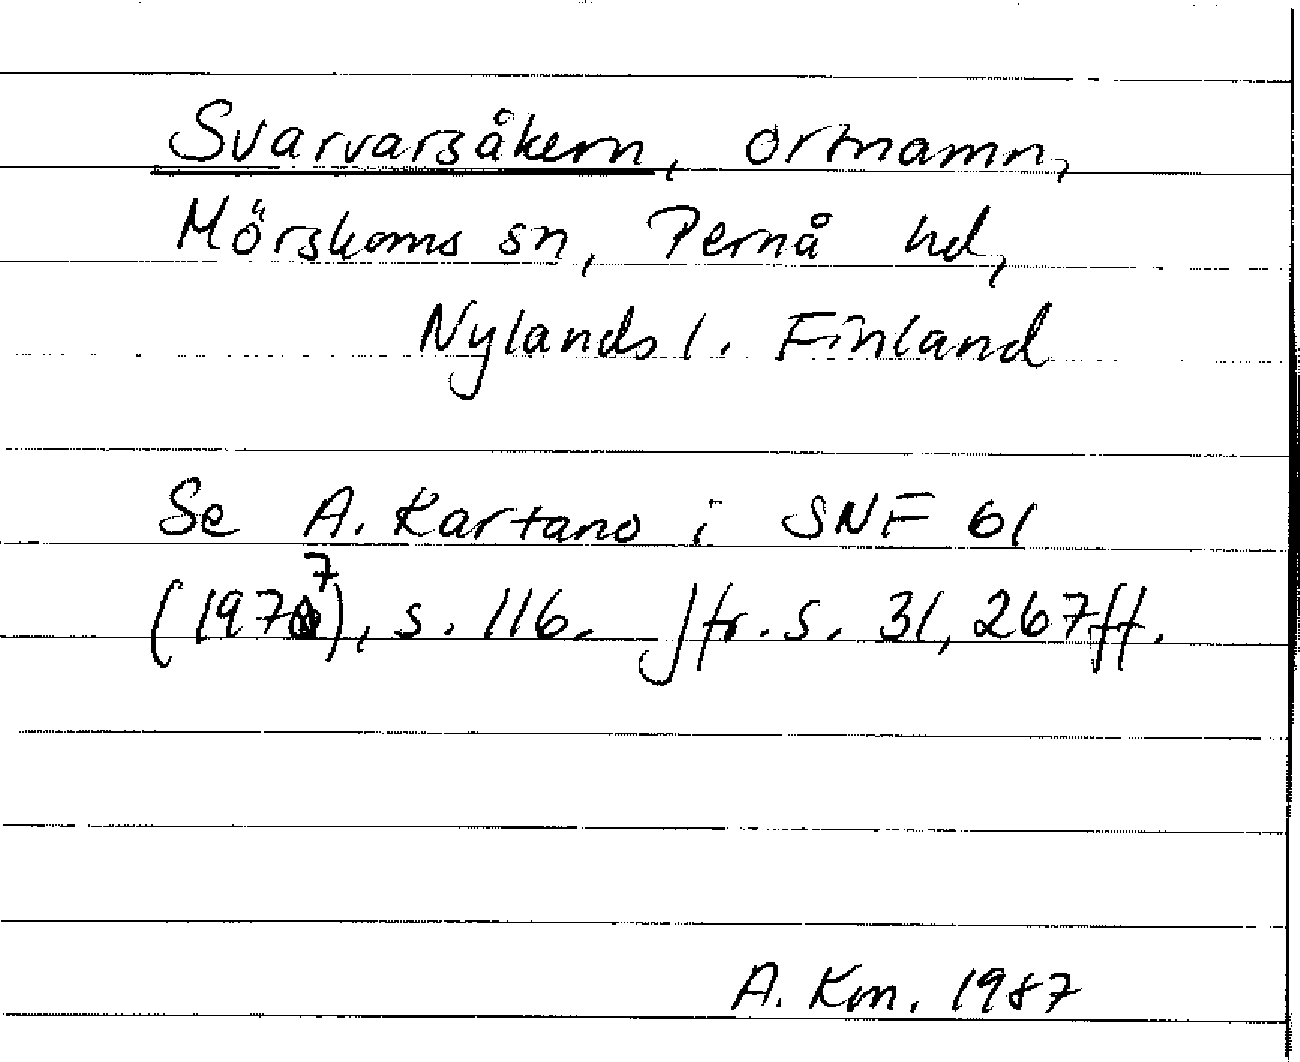 Svarvarsåkern, ortnamn,
Mörskoms sn, Pernå hd,
Nylands l. Finland
Se A. Kartano i SNF 61
(1977), s. 116. Jfr. s. 31, 267ff.
A. Km. 1987